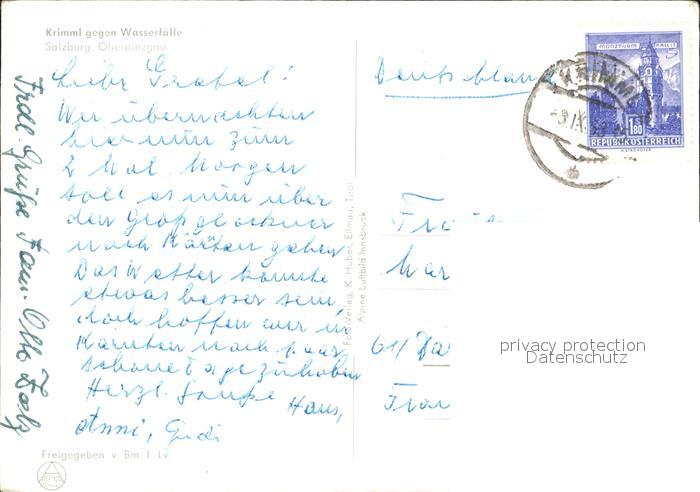 Krimml gegen Wasserfälle
Salzburg, Oberpinzgau
Liebe Gretel!
Wir übernachten
hier nun zum
2. Mal. Morgen
soll es nun über
den Großglockner
nach Kärnten gehen
Das Wetter könnte
etwas besser sein,
doch hoffen wir in
Kärnten noch paar
schöne Tage zu haben
Herzl. Grüße Hans,
Anni, Gudi
Frdl. Grüße Fam. Otto
Freigegeben v. Bm. f. Lv
Foto-Verlag, K. Huber, Ellmau, Tirol
Alpine Luftbild Innsbruck
Deutschland
MÜNZTURM HALL I. T.
1.80
REPUBLIK ÖSTERREICH
KRIMML
IX.
Mar
61/ Da
privacy protection
Datenschutz